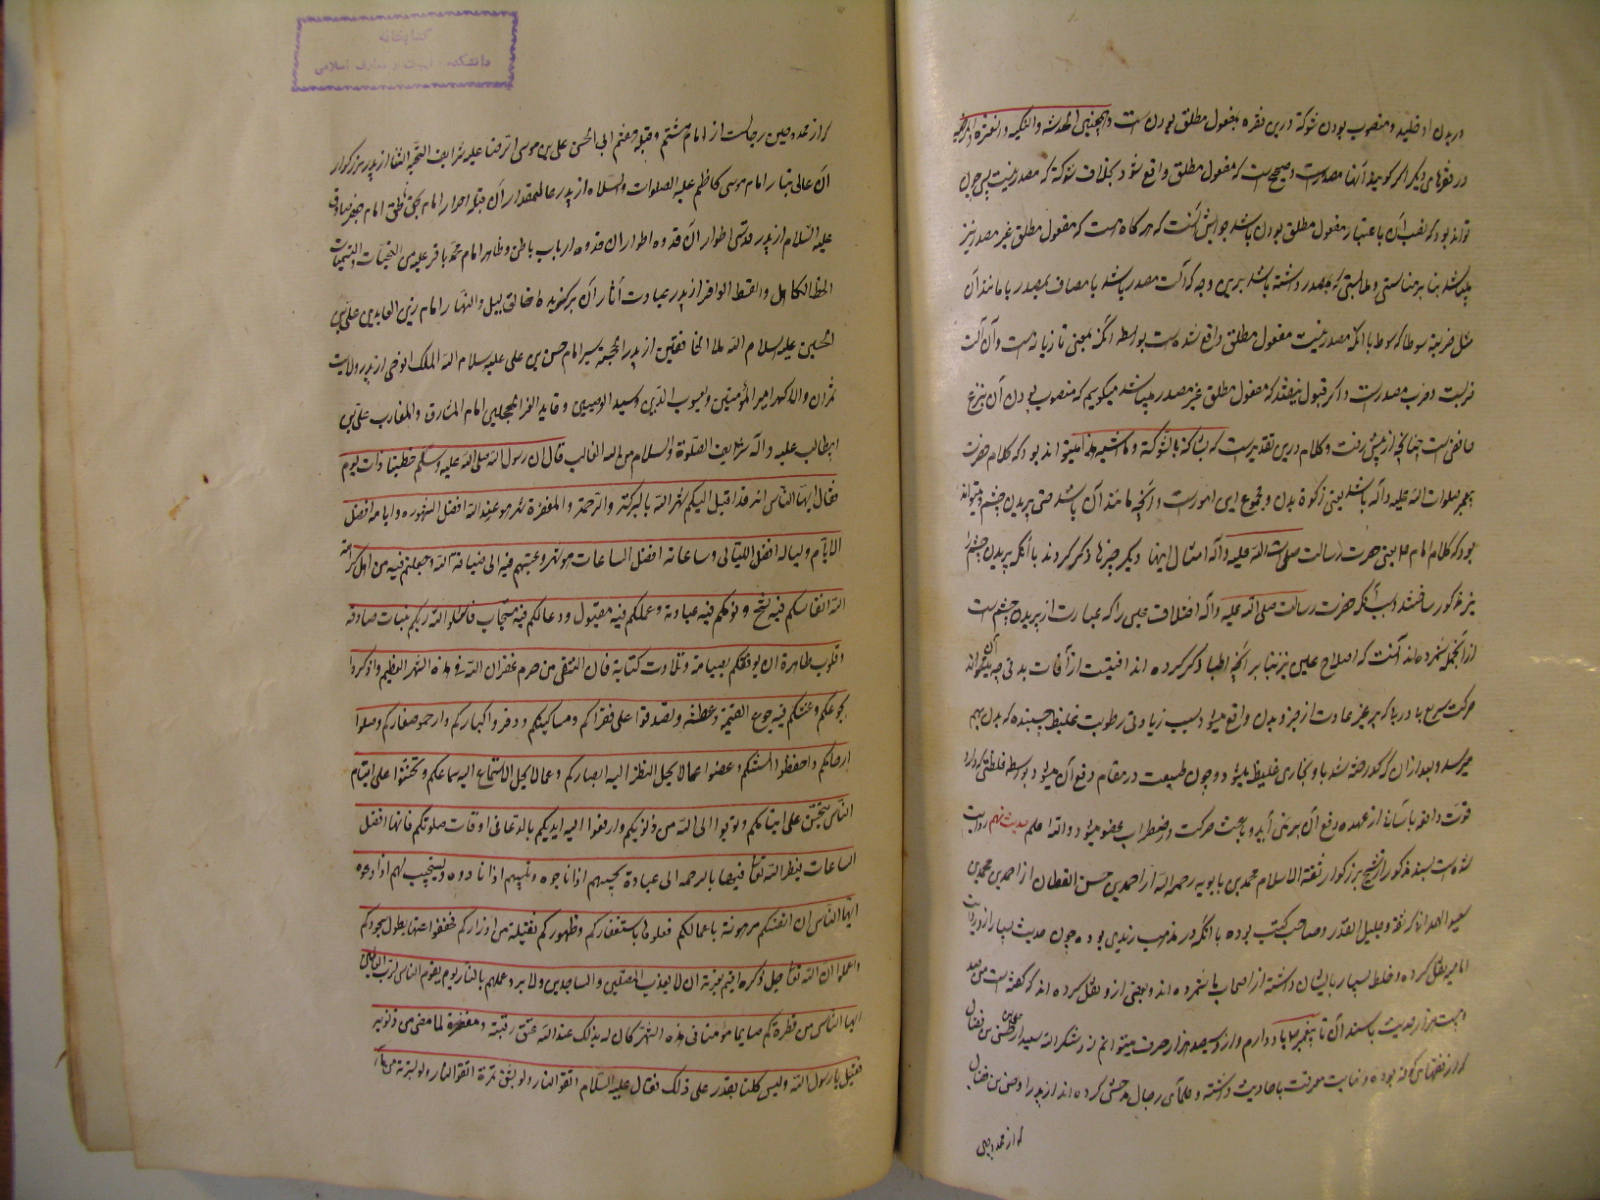 در بدن او خلید و منصوب بودن شوکة درین فقره بمفعول مطلق بودن است و همچنین الخدشة والنکبه والعثرة
در فقرهای دیگر اگر گویند آنها مصدرست و صحیح است که مفعول مطلق واقع شود بخلاف شوکة که مصدر نیست پس چون
تواند بود که نصب آن باعتبار مفعول مطلق بودن باشد جوابش آنست که هر گاه هست که مفعول مطلق غیر مصدر نیز
میباشد بنا بر مناسبتی و ملابستی که بمصدر داشته باشد برین وجه که آلت مصدر باشد یا مضاف بمصدر یا مانند آن
مثل ضربته سوطا که سوط با آنکه مصدر نیست مفعول مطلق واقع شده است بواسطه آنکه بمعنی تازیانه است و آن آلت
ضربست و ضرب مصدرست و اگر قبول نیفتد که مفعول مطلق غیر مصدر میباشد میگوییم که منصوب بودن آن بنزع
خافض است چنانچه از پیش رفت و کلام درین تقدیرست که یشاکه بالشوکة و ما اشبه هذا میتواند بود که کلام حضرت
پیغمبر صلوات الله علیه وآله باشد یعنی زکوة بدن و مجموع این امورست و آنچه مانند آن باشد حتی پریدن چشم و میتواند
بود که کلام امام علیه یعنی حضرت رسالت صلی الله علیه وآله امثال اینها دیگر چیزها ذکر کردند با آنکه پریدن چشم را
نیز مذکور ساختند و سبب آنکه حضرت رسالت صلی الله علیه وآله اختلاف عین را که عبارت از پریدن چشم است
از آنجمله شمرده‌اند آنست که اصلاح عین نیز بنا بر آنچه اطبا ذکر کرده اند آفتیست از آفات بدنی چه آن میتواند
حرکت سریع پی در پیا که بر غیر عادت از جزو بدن واقع میشود بسبب زیادتی رطوبت غلیظ چسبنده که بدن بهم
میرسد و بعد از آن که گداخته شد باد و بخاری غلیظ میشود و چون طبیعت در مقام دفع آن میشود بواسطه غلظتی که دارد
قوت دافعه بآسانی از عهده دفع آن بر نمی آید و باعث حرکت و اضطراب عضو میشود والله اعلم حدیث نهم روایت
شده است بسند مذکور از شیخ بزرگوار ثقة الاسلام محمد بن بابویه رحمه الله از احمد بن حسن القطان از احمد بن محمد بن
سعید الهمدانی که ثقه و جلیل القدر و صاحب کتب بوده با آنکه در مذهب زیدی بوده چون حدیث بسیار از روایت
امامیه نقل کرده و خلط بسیار بایشان داشته از اصحاب ما شمرده اند و بعضی ازو نقل کرده اند که گفته است من صد
و بیست هزار حدیث با سند آن تا پیغمبر بیاد دارم و از سیصد هزار حرف میتوانم زد شکر الله سعیه از علی بن حسن بن فضال
که از فقهای کوفه بوده و نهایت معرفت باحادیث داشته و علمای رجال مدحش کرده اند از پدر او حسن بن فضال
که از ممدوحین
که از ممدوحین رجالست از امام هشتم و قبله هفتم ابی الحسن علی بن موسی الرضا علیه شرایف التحیة والثنا از پدر بزرگوار
آن عالی تبار امام موسی کاظم علیه الصلوات والسلام از پدر عالیمقدار آن قبلهٔ احرار امام بحق ناطق امام جعفر صادق
علیه السلام از پدر قدسی اطوار آن قدوه اطوار آن قدوه ارباب باطن و ظاهر امام محمد باقر علیه من التحیات والتسلیمات
الحظ الکامل والقسط الوافر از پدر عبادت آثار آن برگزیده خالق لیل والنهار امام زین العابدین علی بن
الحسین علیه سلام الله ملا الخافقین از پدر الحجة سیر امام حسن بن علی علیه سلام الله الملک الوحی از پدر ولایت
نشان والاگهر امیر المؤمنین و یعسوب الدین و سید الوصیین و قاید الغر المحجلین امام المشارق والمغارب علی بن
ابیطالب علیه وآله شرایف الصلوة والسلام من الله الغالب قال ان رسول الله صلی الله علیه وسلم خطبنا ذات یوم
فقال ایها الناس انه قد اقبل الیکم شهر الله بالبرکة والرحمة والمغفرة شهر هو عند الله افضل الشهور وایامه افضل
الایام ولیالیه افضل اللیالی وساعاته افضل الساعات هو شهر دعیتم فیه الی ضیافة الله وجعلتم فیه من اهل کرامة
الله انفاسکم فیه تسبیح ونومکم فیه عبادة وعملکم فیه مقبول ودعاکم فیه مستجاب فاسئلوا الله ربکم بنیات صادقه
وقلوب طاهرة ان یوفقکم بصیامه وتلاوت کتابه فان الشقی من حرم غفران الله فی هذه الشهر العظیم واذکروا
بجوعکم وعطشکم فیه جوع القیمة وعطشه وتصدقوا علی فقراکم ومساکینکم ووقروا کبارکم وارحموا صغارکم وصلوا
ارحامکم واحفظوا السنتکم وغضوا عما لا یحل النظر الیه ابصارکم وعما لا یحل الاستماع الیه سماعکم وتحننوا علی ایتام
الناس یتحنن علی ایتامکم وتوبوا الی الله من ذنوبکم وارفعوا الیه ایدیکم بالدعا فی اوقات صلوتکم فانها افضل
الساعات ینظر الله تعالی فیها بالرحمه الی عباده یجیبهم اذا ناجوه ویلبیهم اذا نادوه ویستجیب لهم اذا دعوه
ایها الناس ان انفسکم مرهونة باعمالکم ففکوها باستغفارکم وظهورکم ثقیلة من اوزارکم فخففوا عنها بطول سجودکم
واعلموا ان الله تعالی جل ذکره اقسم بعزته ان لا یعذب المصلین والساجدین ولا یروعهم بالنار یوم یقوم الناس لرب العالمین
ایها الناس من فطر منکم صایما مؤمنا فی هذه الشهر کان له بذلک عند الله عتق رقبة ومغفرة لما مضی من ذنوبه
فقیل یا رسول الله ولیس کلنا یقدر علی ذلک فقال علیه السلام اتقوا النار ولو بشق تمرة اتقوا النار ولو بشربة من ماء
کتابخانه
دانشکده الهیات و معارف اسلامی